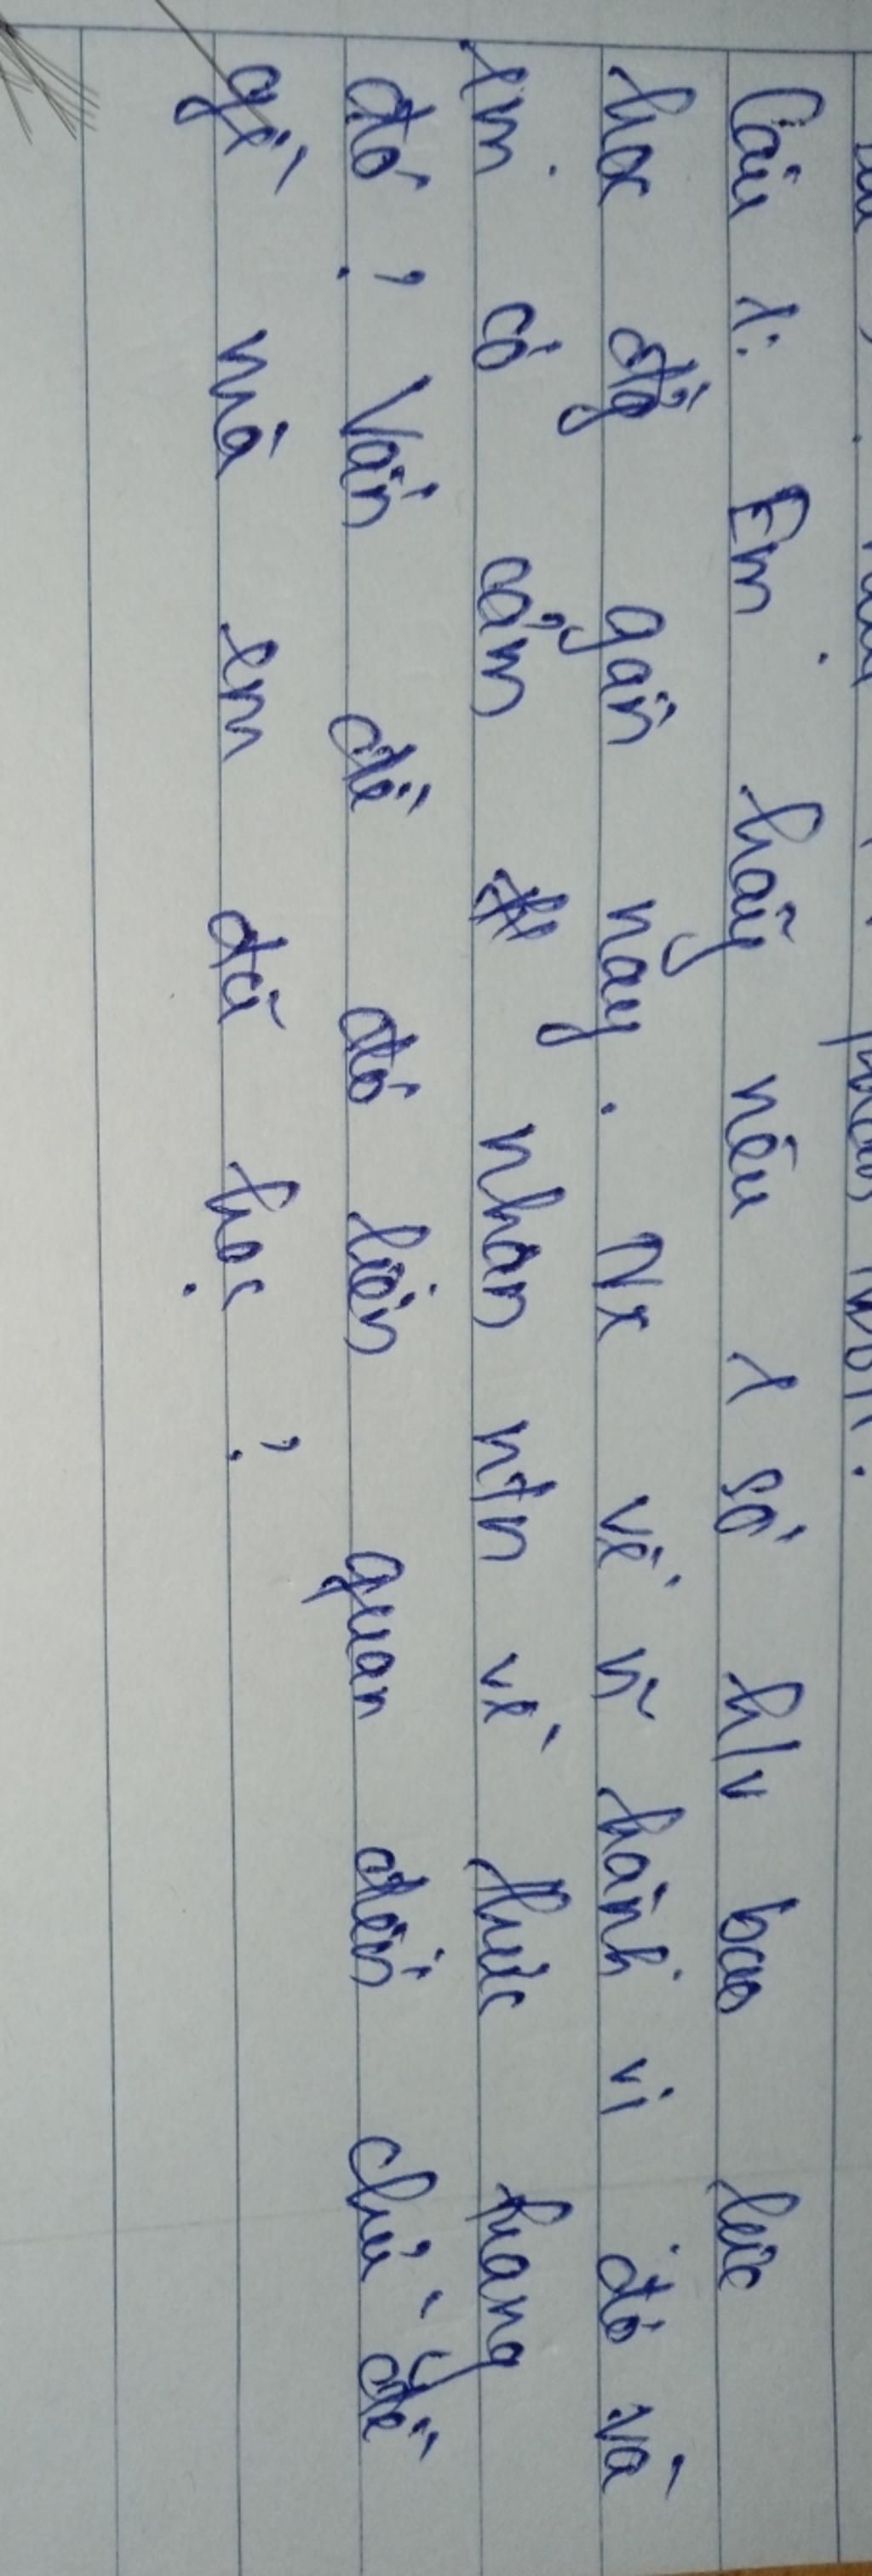 Câu 1: Em hãy nêu 1 số h/v bạo lực
học đg gần nay. Nx về n~ hành vi đó và
em có cảm nhận ntn về thực trạng
đó? Vấn đề đó liên quan đến chủ đề
gì mà em đã học?